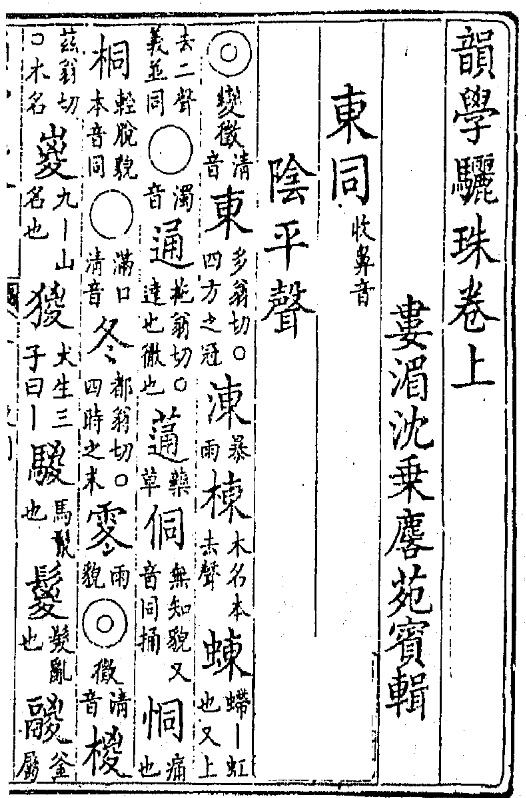 韻學驪珠卷上
婁湄沈乗麐苑賓輯
東同收鼻音
陰平聲
◎變徵清音東多翁切○四方之冠涷暴雨棟木名本去聲蝀螮丨虹也又上
去二聲義並同○濁音通拖翁切○達也徹也蓪藥草侗無知貌又音同捅恫痛也
桐輕脫貌本音同○滿口清音冬都翁切○四時之末䨦雨貌◎徵清音椶
茲翁切○木名嵏九丨山名也猣犬生三子曰丨騣馬鬛也鬉髮亂也鬷釜屬